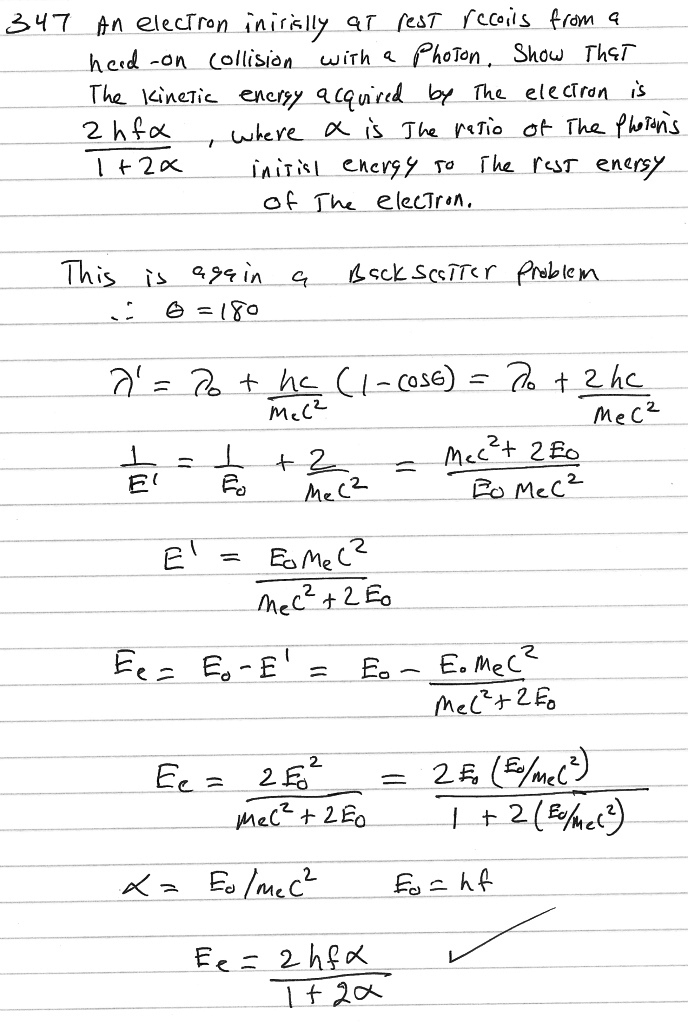 347 An electron initially at rest recoils from a
head-on collision with a Photon. Show That
The kinetic energy acquired by The electron is
2hfα / 1+2α , where α is The ratio of The photon's
initial energy to The rest energy
of The electron.
This is again a Backscatter Problem
∴ θ = 180
λ' = λ₀ + hc/MeC² (1-cosθ) = λ₀ + 2hc/MeC²
1/E' = 1/E₀ + 2/MeC² = MeC² + 2E₀ / E₀MeC²
E' = E₀MeC² / MeC² + 2E₀
Ee = E₀ - E' = E₀ - E₀MeC² / MeC² + 2E₀
Ee = 2E₀² / MeC² + 2E₀ = 2E₀(E₀/meC²) / 1 + 2(E₀/meC²)
α = E₀/meC² E₀ = hf
Ee = 2hfα / 1+2α ✓